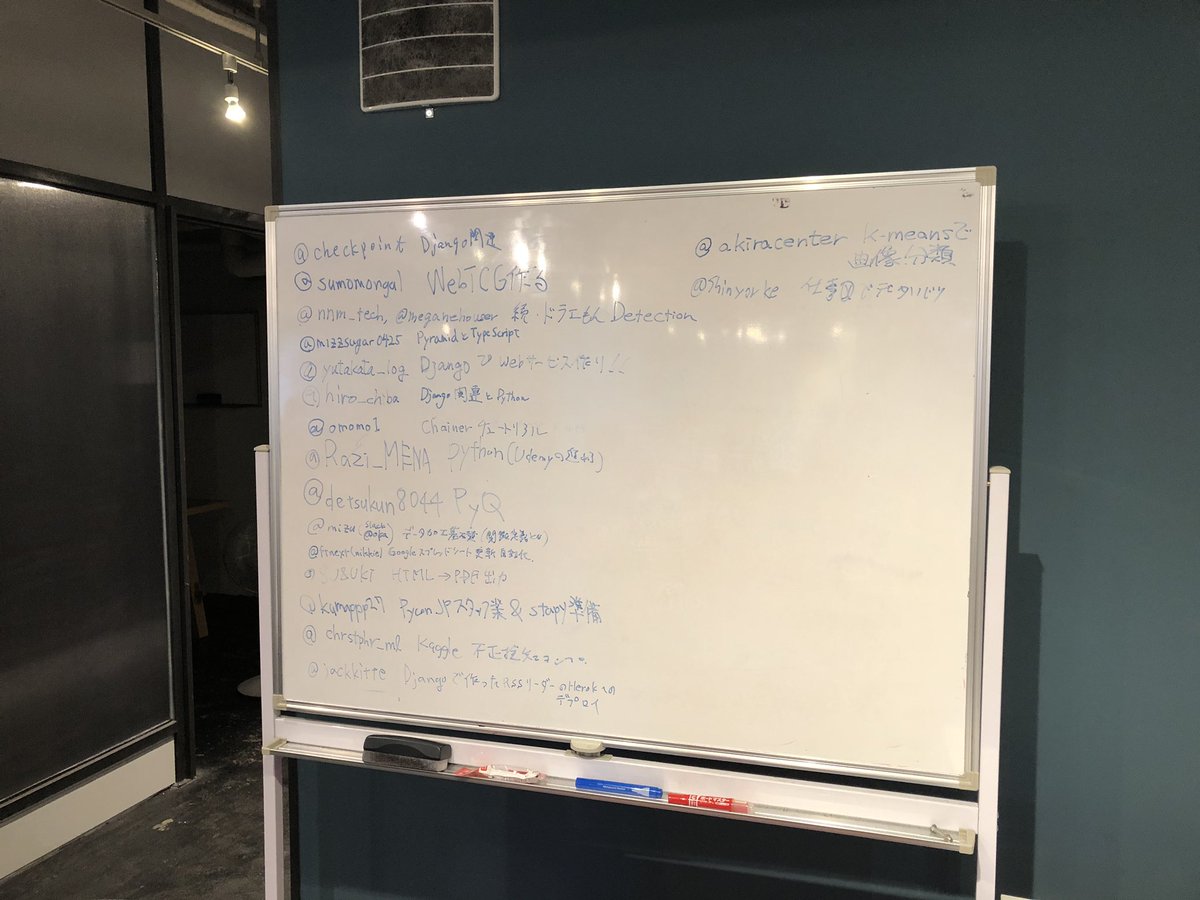 @checkpoint Django関連
@sumomonga1 WebTCG作る
@nnm_tech, @meganehouser 続・ドラえもん Detection
@mizzsugar0425 PyramidとTypeScript
@yutakata_log DjangoでWebサービス作り
@hiro_chiba Django関連とPython
@omomo1 Chainer チュートリアル
@Razi_MENA python(Udemyの
@detsukun8044 PyQ
@mizu(slack @oka) データ加工
(nikkie) Googleスプレッドシート更新自動化.
HTML→PDF出力
@kumappp27 PyconJPスタッフ業&stapy準備
@chrstphr_ml Kaggle 不正検知コンペ.
@jackkitte Djangoで作ったRSSリーダーのHerokuへの
デプロイ
@akiracenter k-meansで
画像分類
@Shinyorke 仕事